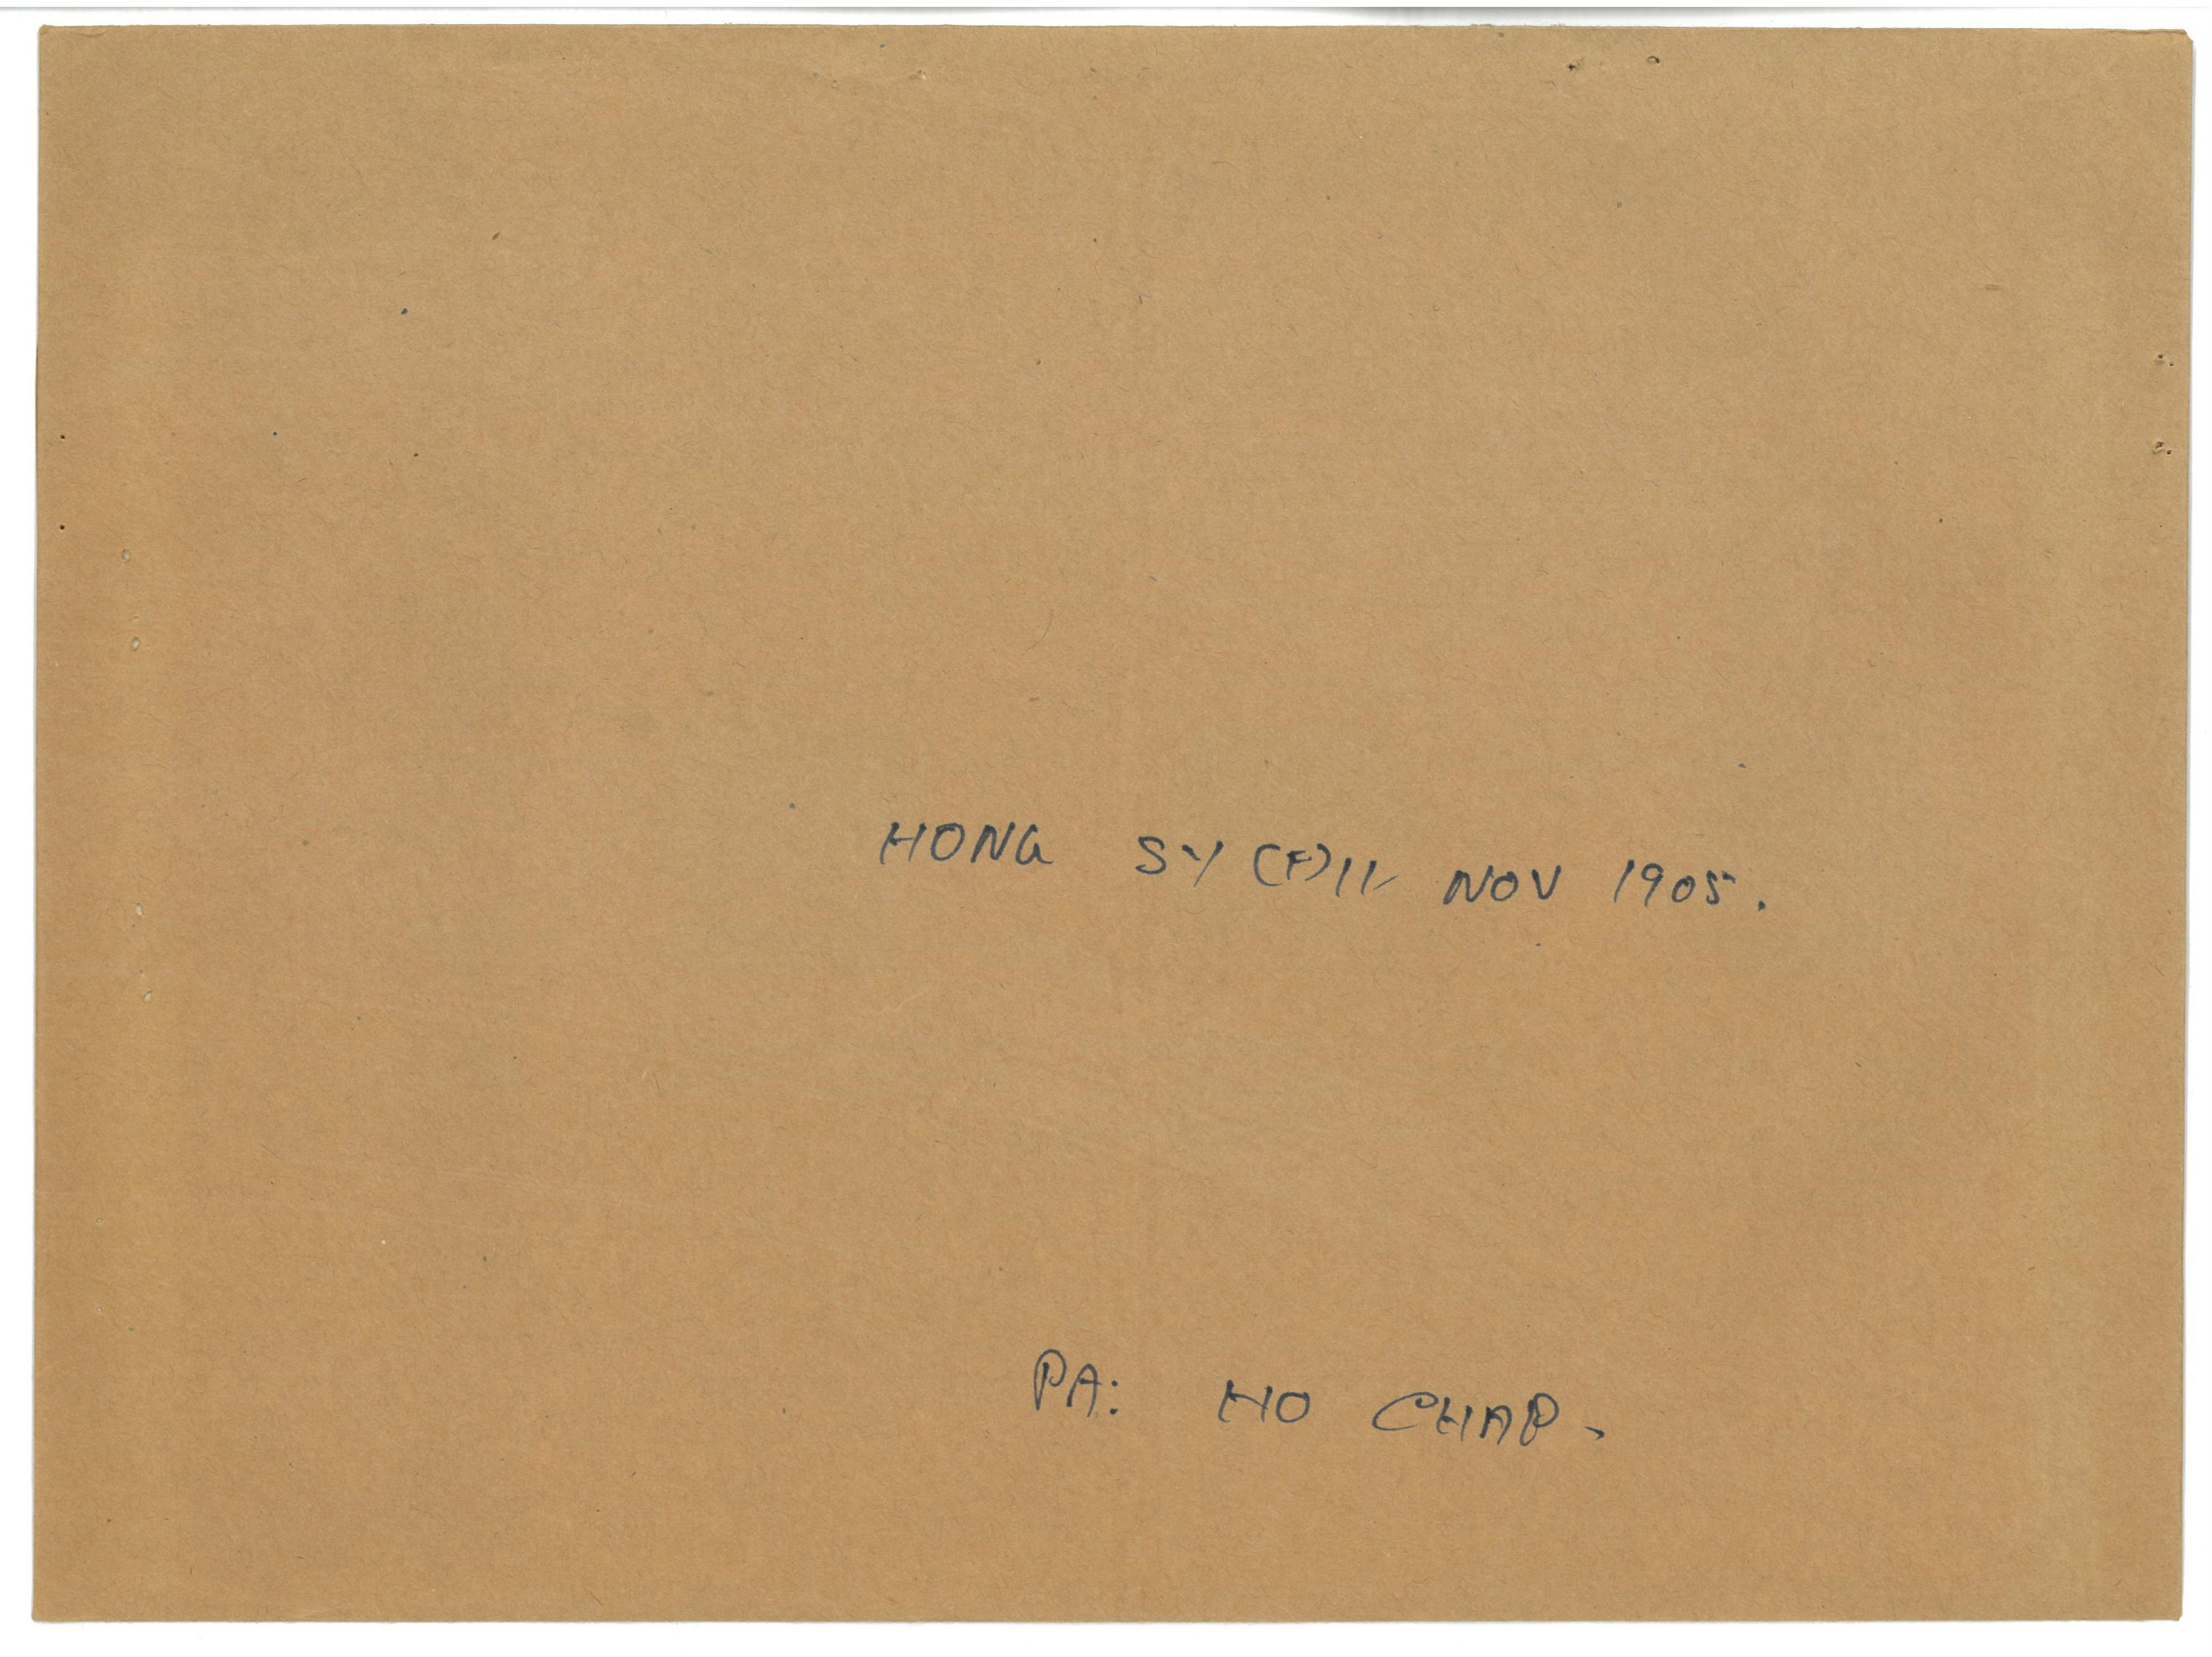 HONG SY (F) 11 NOV 1905.
PA: HO CHAP.